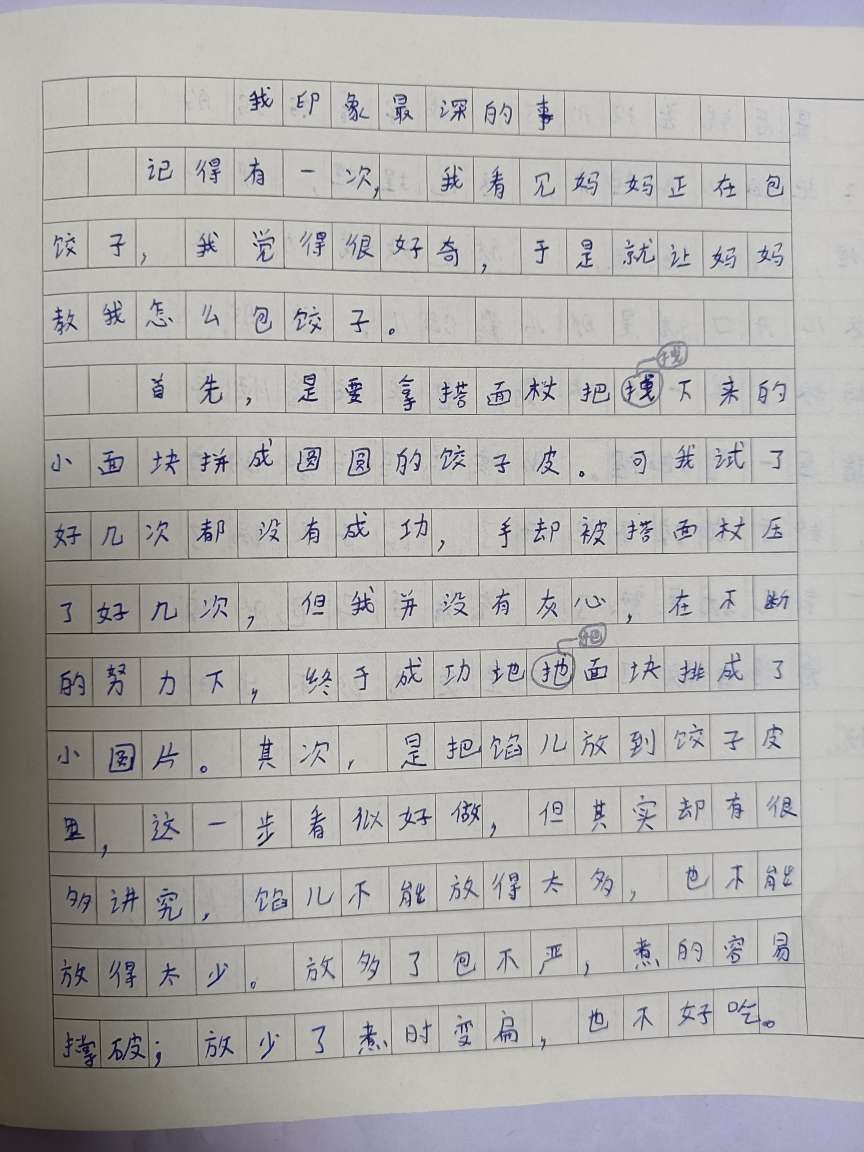 我印象最深的事
记得有一次，我看见妈妈正在包
饺子，我觉得很好奇，于是就让妈妈
教我怎么包饺子。
拽
首先，是要拿搭面杖把拽下来的
小面块拼成圆圆的饺子皮。可我试了
好几次都没有成功，手却被搭面杖压
了好几次，但我并没有灰心，在不断
把
的努力下，终于成功地地面块排成了
小圆片。其次，是把馅儿放到饺子皮
里，这一步看似好做，但其实却有很
多讲究，馅儿不能放得太多，也不能
放得太少。放多了包不严，煮的容易
撑破；放少了煮时变扁，也不好吃。